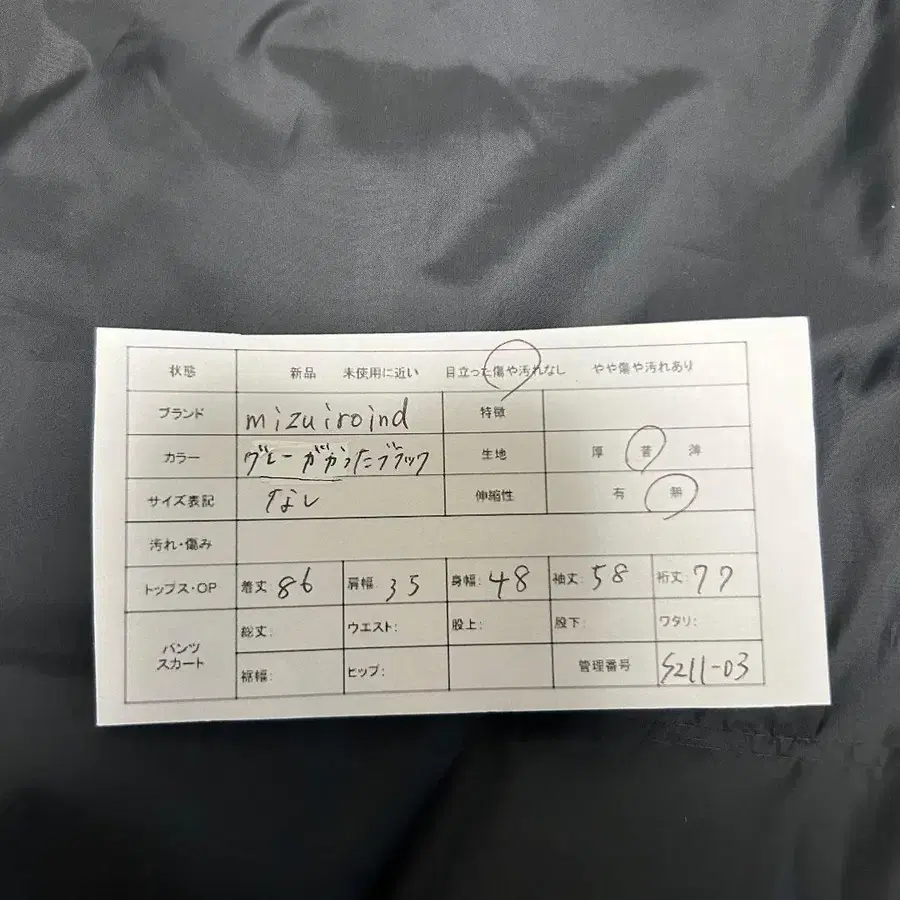 状態 新品 未使用に近い 目立った傷や汚れなし やや傷や汚れあり
ブランド mizuiroind 特徴
カラー グレーがかったブラック 生地 厚 普 薄
サイズ表記 なし 伸縮性 有 無
汚れ・傷み
トップス・OP 着丈: 86 肩幅: 35 身幅: 48 袖丈: 58 裄丈: 77
パンツ スカート 総丈: ウエスト: 股上: 股下: ワタリ:
裾幅: ヒップ: 管理番号 S211-03